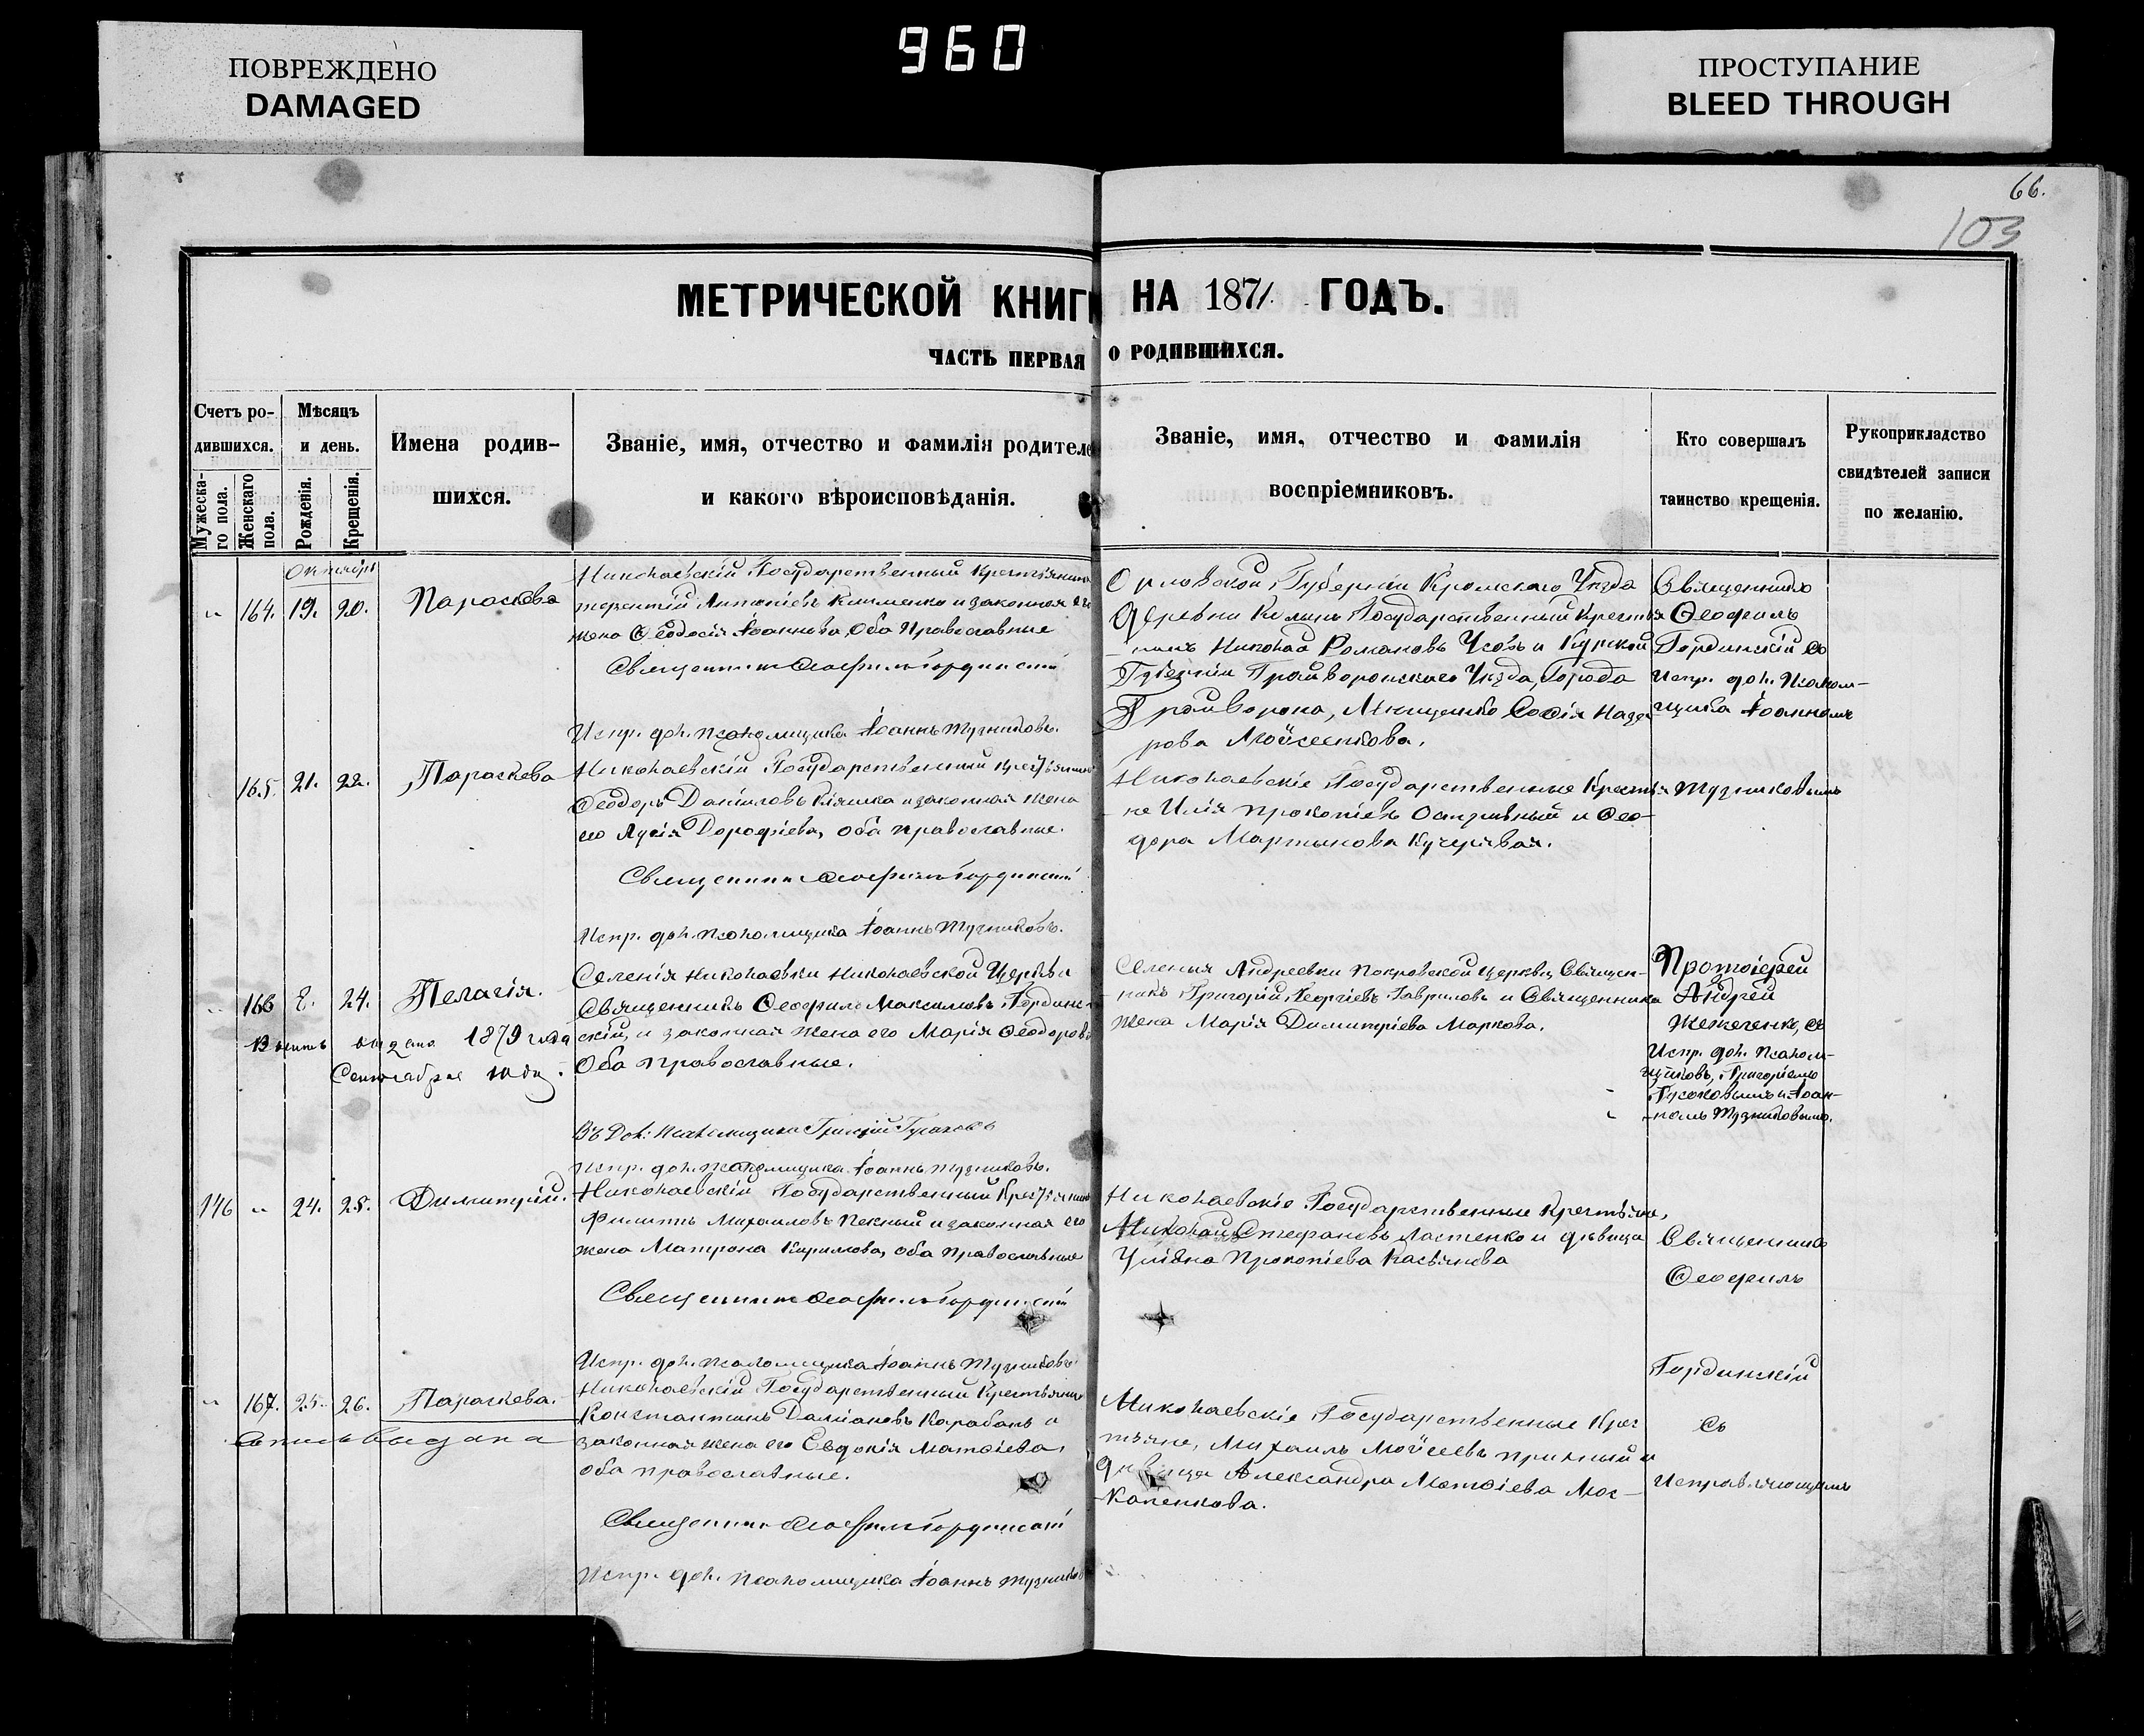 960
ПОВРЕЖДЕНО
DAMAGED
ПРОСТУПАНИЕ
BLEED THROUGH
66.
103
МЕТРИЧЕСКОЙ КНИГИ НА 1871 ГОДЪ.
ЧАСТЬ ПЕРВАЯ О РОДИВШИХСЯ.
Счетъ ро-
дившихся.
Мужеска-
го пола.
Женскаго
пола.
Мѣсяцъ
и день.
Рожденія.
Крещенія.
Имена родив-
шихся.
Званіе, имя, отчество и фамилія родителе
и какого вѣроисповѣданія.
Званіе, имя, отчество и фамилія
воспріемниковъ.
Кто совершалъ
таинство крещенія.
Рукоприкладство
свидѣтелей записи
по желанію.
Октябрь
„ 164. 19. 20. Параскева
Николаевскій Государственный крестьянинъ
Терентій Антоніевъ Клименко и законная его
жена Ѳеодосія Іоаннова Оба Православные
Священникъ Ѳеофилъ Гординскій
Испр. дол. псаломщика Іоаннъ Тузниковъ.
Орловской Губерніи Кромскаго Уѣзда
Деревни Государственный крестья
нинъ Николай Романовъ Усовъ и Курской
Губерніи Грайворонскаго Уѣзда, Города
Грайворона, Мѣщанка Софія Наза
рова Мойсеенкова.
Священникъ
Ѳеофилъ
Гординскій съ
Испр. дол. Псалом-
щика Іоанномъ
Тузниковымъ
165. 21. 22. Параскева
Николаевскій Государственный крестьянинъ
Ѳеодоръ Даніиловъ Кіяшка и законная жена
его Лукія Дороѳіева, оба православные.
Священникъ Ѳеофилъ Гординскій
Испр. дол. псаломщика Іоаннъ Тузниковъ.
Николаевскіе Государственные Крестья
не Илія Прокопіевъ и Ѳео-
дора Мартынова Кучерявая.
„ 166 8. 24. Пелагія.
выдано 1879 года
Сентября 10 дня.
Селенія Николаевки Николаевской Церкви
Священникъ Ѳеофилъ Максимовъ Гординс-
скій, и законная жена его Марія Ѳеодорова
Оба православные.
Въ Дол: Псаломщика Григорій Гусаковъ
Испр. дол. псаломщика Іоаннъ Тузниковъ.
Селенія Андреевки Покровской церкви, Священ-
никъ Григорій Георгіевъ Гавриловъ и Священника
жена Марія Димитріева Маркова.
Протоіерей
Андрей
съ
Испр. дол. Псалом-
щиковъ, Григоріемъ
Гусаковымъ и Іоан-
номъ Тузниковымъ.
146 „ 24. 25. Димитрій.
Николаевскій Государственный Крестьянинъ
Филиппъ Михаиловъ и законная его
жена Матрона Кирилова, оба православные
Священникъ Ѳеофилъ Гординскій
Испр. дол. псаломщика Іоаннъ Тузниковъ
Николаевскіе Государственные Крестьяне,
Николай Стефановъ Ластенко и дѣвица
Уліяна Прокопіева Касьянова
Священникъ
Ѳеофилъ
Гординскій
съ
Исправляющимъ
„ 167. 25. 26. Параскева.
выдана
Николаевскій Государственный Крестьянинъ
Константинъ Даміановъ Карабанъ и
законная жена его Евдокія Матѳіева,
оба православные.
Священникъ Ѳеофилъ Гординскій
Испр. дол. псаломщика Іоаннъ Тузниковъ
Николаевскіе Государственные Крес
тьяне, Михаилъ Мойсеевъ и
дѣвица Александра Матѳіева Мос-
каленкова.